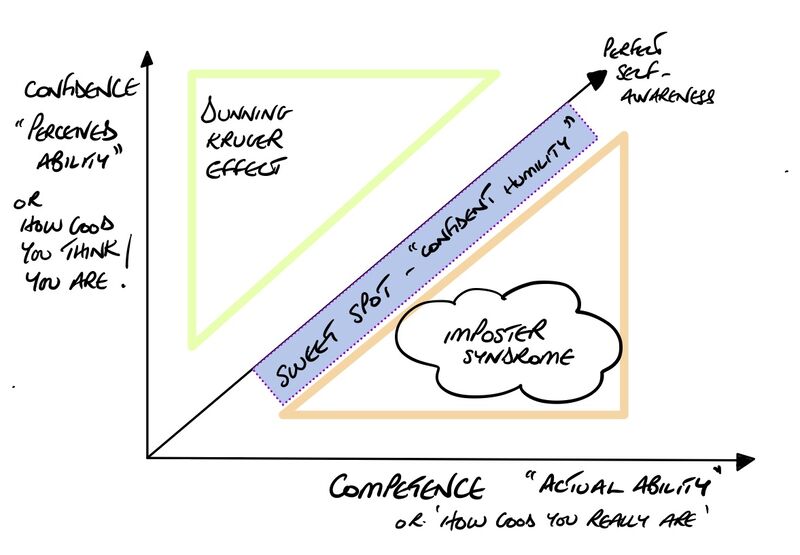 CONFIDENCE
"PERCEIVED
ABILITY"
OR
HOW GOOD
YOU THINK
YOU ARE.
DUNNING
KRUGER
EFFECT
PERFECT
SELF-
AWARENESS
SWEET SPOT - "CONFIDENT HUMILITY"
IMPOSTER
SYNDROME
COMPETENCE "ACTUAL ABILITY"
OR 'HOW GOOD YOU REALLY ARE'